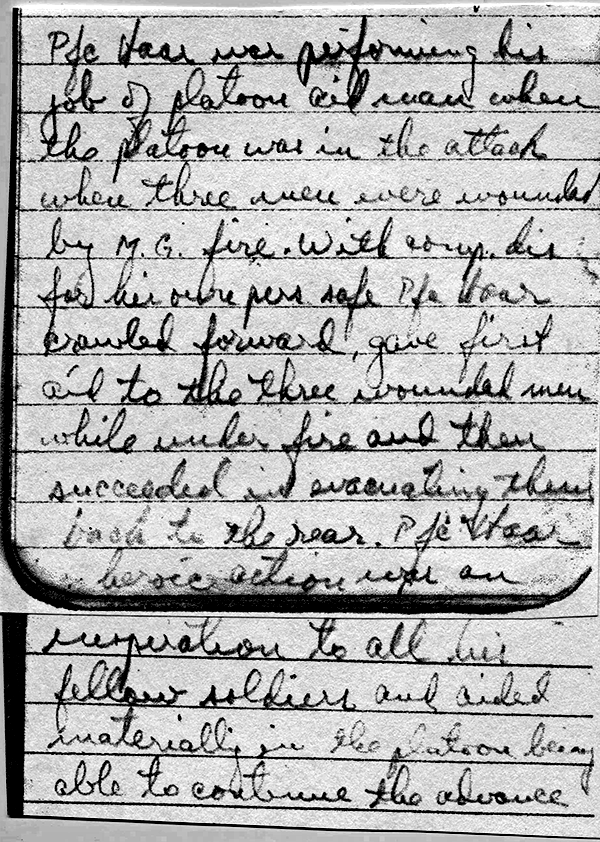 Pfc Haar was performing his
job of platoon aid man when
the platoon was in the attack
when three men were wounded
by M.G. fire. With comp. dis
for his own pers safe Pfc Haar
crawled forward, gave first
aid to the three wounded men
while under fire and then
succeeded in evacuating them
back to the rear. Pfc Haar
heroic action was an
inspiration to all his
fellow soldiers and aided
materially in the platoon being
able to continue the advance